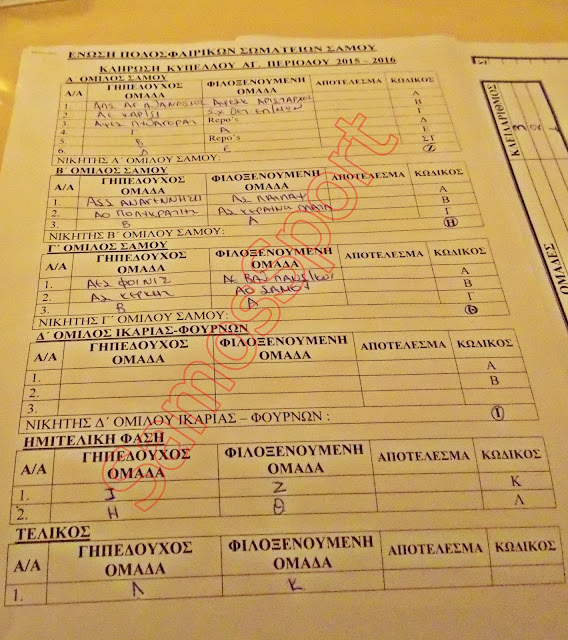 ΕΝΩΣΗ ΠΟΔΟΣΦΑΙΡΙΚΩΝ ΣΩΜΑΤΕΙΩΝ ΣΑΜΟΥ
ΚΛΗΡΩΣΗ ΚΥΠΕΛΛΟΥ ΑΓ. ΠΕΡΙΟΔΟΥ 2015 – 2016
Α΄ ΟΜΙΛΟΣ ΣΑΜΟΥ
Α/Α ΓΗΠΕΔΟΥΧΟΣ ΟΜΑΔΑ ΦΙΛΟΞΕΝΟΥΜΕΝΗ ΟΜΑΔΑ ΑΠΟΤΕΛΕΣΜΑ ΚΩΔΙΚΟΣ
1. ΑΠΣ ΑΓ ΑΘΑΝΑΣΙΟΣ ΑΡΙΣΤΑΡΧΟΣ Α
2. Β
3. ΠΥΘΑΓΟΡΑΣ Repo's Γ
4. Γ Α Δ
5. Β Repo's Ε
6. Δ Ε ΣΤ
ΝΙΚΗΤΗΣ Α΄ ΟΜΙΛΟΥ ΣΑΜΟΥ: Ζ
Β΄ ΟΜΙΛΟΣ ΣΑΜΟΥ
Α/Α ΓΗΠΕΔΟΥΧΟΣ ΟΜΑΔΑ ΦΙΛΟΞΕΝΟΥΜΕΝΗ ΟΜΑΔΑ ΑΠΟΤΕΛΕΣΜΑ ΚΩΔΙΚΟΣ
1. ΑΝΑΓΕΝΝΗΣΗ Α
2. ΑΟ ΠΟΛΥΚΡΑΤΗΣ ΑΣ Β
3. Β Α Γ
ΝΙΚΗΤΗΣ Β΄ ΟΜΙΛΟΥ ΣΑΜΟΥ: Η
Γ΄ ΟΜΙΛΟΣ ΣΑΜΟΥ
Α/Α ΓΗΠΕΔΟΥΧΟΣ ΟΜΑΔΑ ΦΙΛΟΞΕΝΟΥΜΕΝΗ ΟΜΑΔΑ ΑΠΟΤΕΛΕΣΜΑ ΚΩΔΙΚΟΣ
1. ΦΟΙΝΙΞ Α
2. ΑΣ ΚΕΡΚΗΣ ΑΟ ΣΑΜΟΥ Β
3. Β Α Γ
ΝΙΚΗΤΗΣ Γ΄ ΟΜΙΛΟΥ ΣΑΜΟΥ: Θ
Δ΄ ΟΜΙΛΟΣ ΙΚΑΡΙΑΣ-ΦΟΥΡΝΩΝ
Α/Α ΓΗΠΕΔΟΥΧΟΣ ΟΜΑΔΑ ΦΙΛΟΞΕΝΟΥΜΕΝΗ ΟΜΑΔΑ ΑΠΟΤΕΛΕΣΜΑ ΚΩΔΙΚΟΣ
1. Α
2. Β
3.
ΝΙΚΗΤΗΣ Δ΄ ΟΜΙΛΟΥ ΙΚΑΡΙΑΣ – ΦΟΥΡΝΩΝ : Ι
ΗΜΙΤΕΛΙΚΗ ΦΑΣΗ
Α/Α ΓΗΠΕΔΟΥΧΟΣ ΟΜΑΔΑ ΦΙΛΟΞΕΝΟΥΜΕΝΗ ΟΜΑΔΑ ΑΠΟΤΕΛΕΣΜΑ ΚΩΔΙΚΟΣ
1. Ι Ζ Κ
2. Η Θ Λ
ΤΕΛΙΚΟΣ
Α/Α ΓΗΠΕΔΟΥΧΟΣ ΟΜΑΔΑ ΦΙΛΟΞΕΝΟΥΜΕΝΗ ΟΜΑΔΑ ΑΠΟΤΕΛΕΣΜΑ ΚΩΔΙΚΟΣ
1. Λ Κ
ΚΛΕΙΔΑΡΙΘΜΟΣ
ΟΜΑΔΕΣ
SamosSport